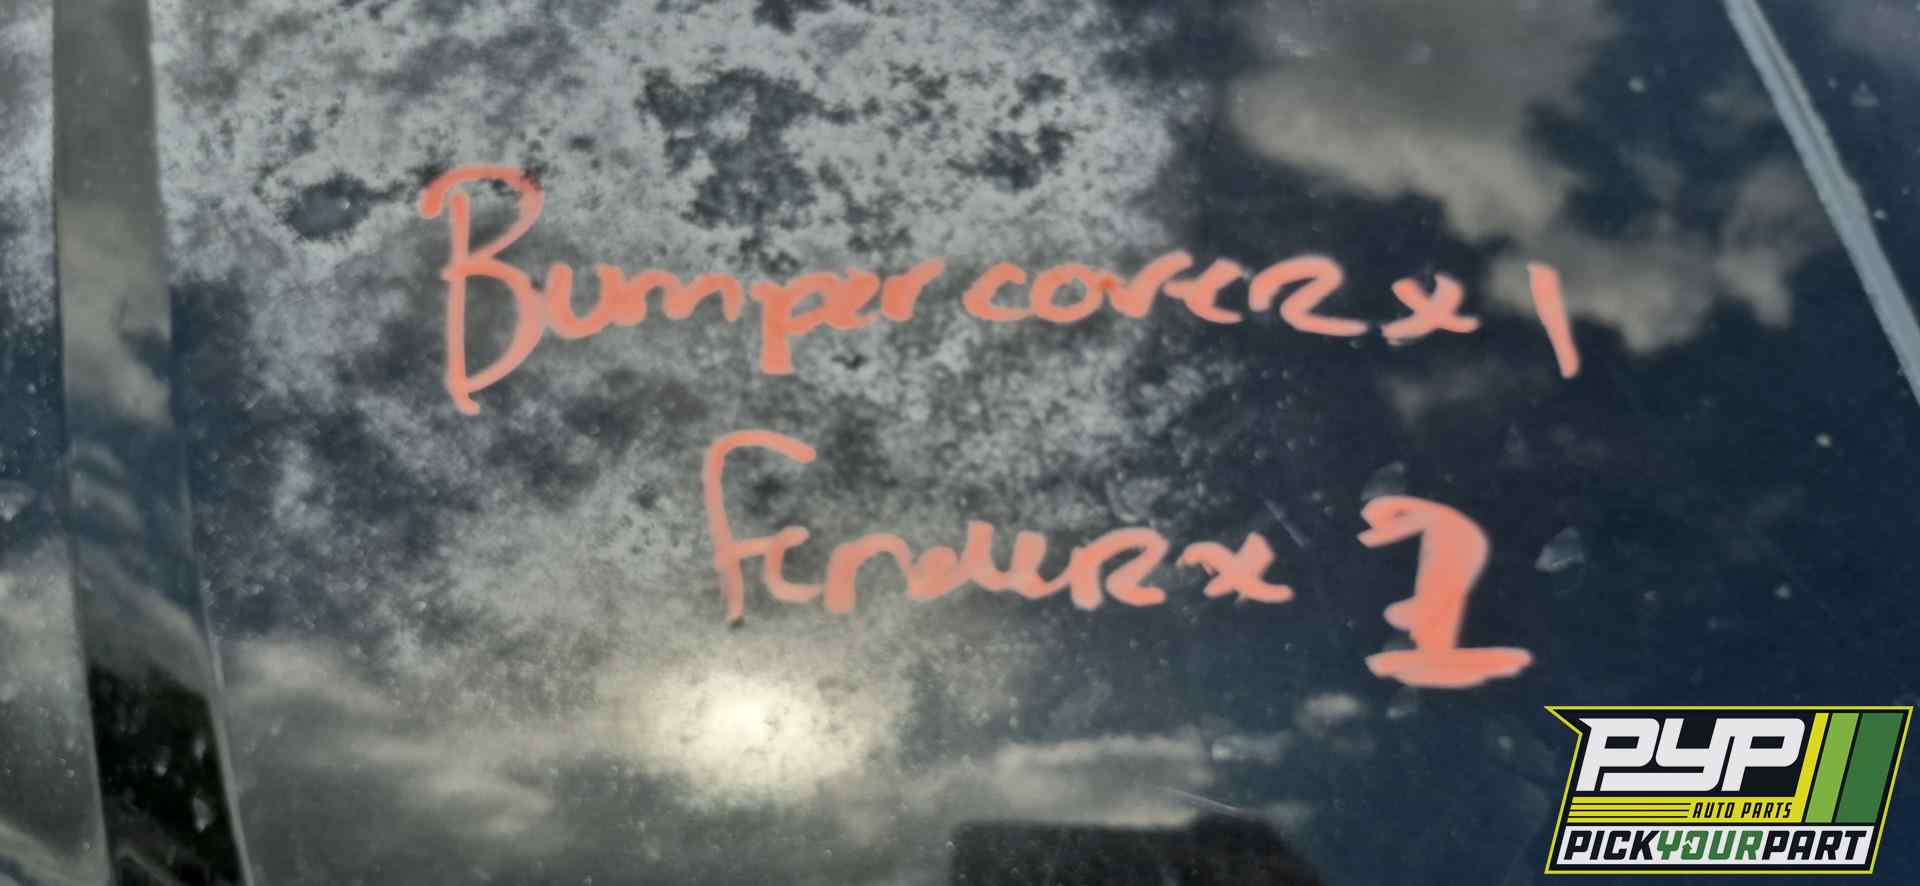 Bumper coveR x 1
FendeR x 1
PYP
AUTO PARTS
PICKYOURPART